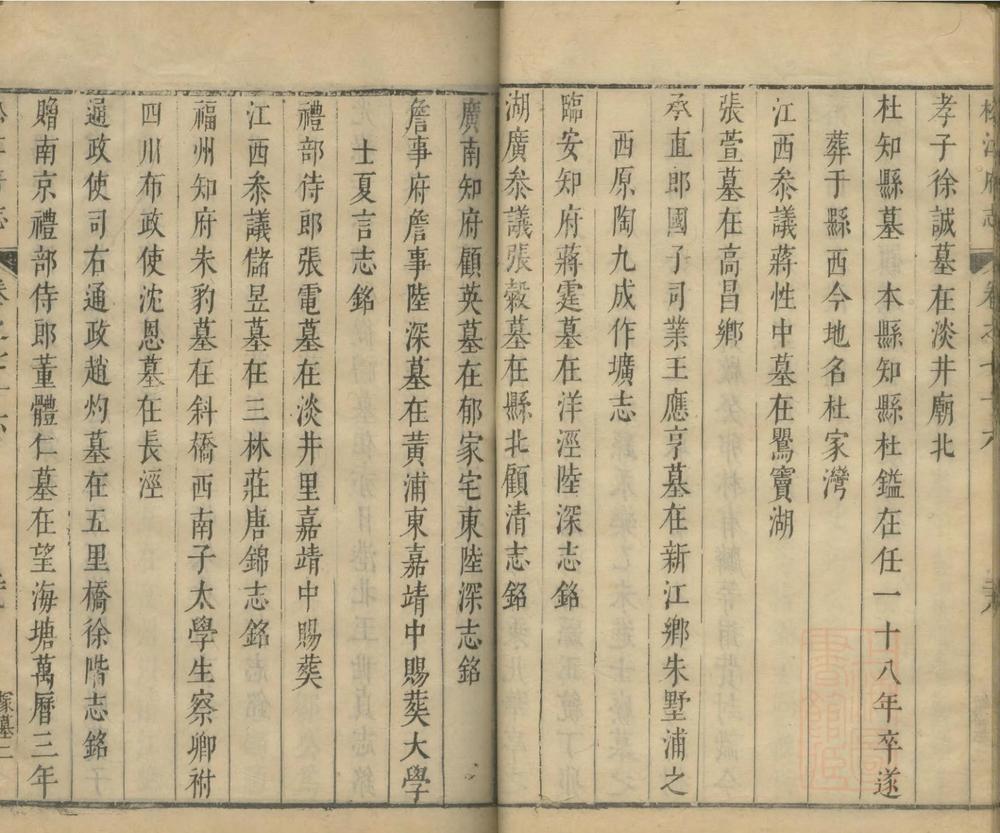 孝子徐誠墓在淡井廟北
杜知縣墓 本縣知縣杜鎰在任一十八年卒遂
葬于縣西今地名杜家灣
江西叅議蔣性中墓在鸎竇湖
張萱墓在高昌鄉
承直郎國子司業王應亨墓在新江鄉朱墅浦之
西原陶九成作壙志
臨安知府蔣霆墓在洋涇陸深志銘
湖廣叅議張縠墓在縣北顧清志銘
廣南知府顧英墓在郁家宅東陸深志銘
詹事府詹事陸深墓在黃浦東嘉靖中賜葬大學
士夏言志銘
禮部待郎張電墓在淡井里嘉靖中賜葬
江西叅議儲昱墓在三林莊唐錦志銘
福州知府朱豹墓在斜橋西南子太學生察卿祔
四川布政使沈恩墓在長涇
通政使司右通政趙灼墓在五里橋徐階志銘
贈南京禮部侍郎董體仁墓在望海塘萬曆三年
塚墓二